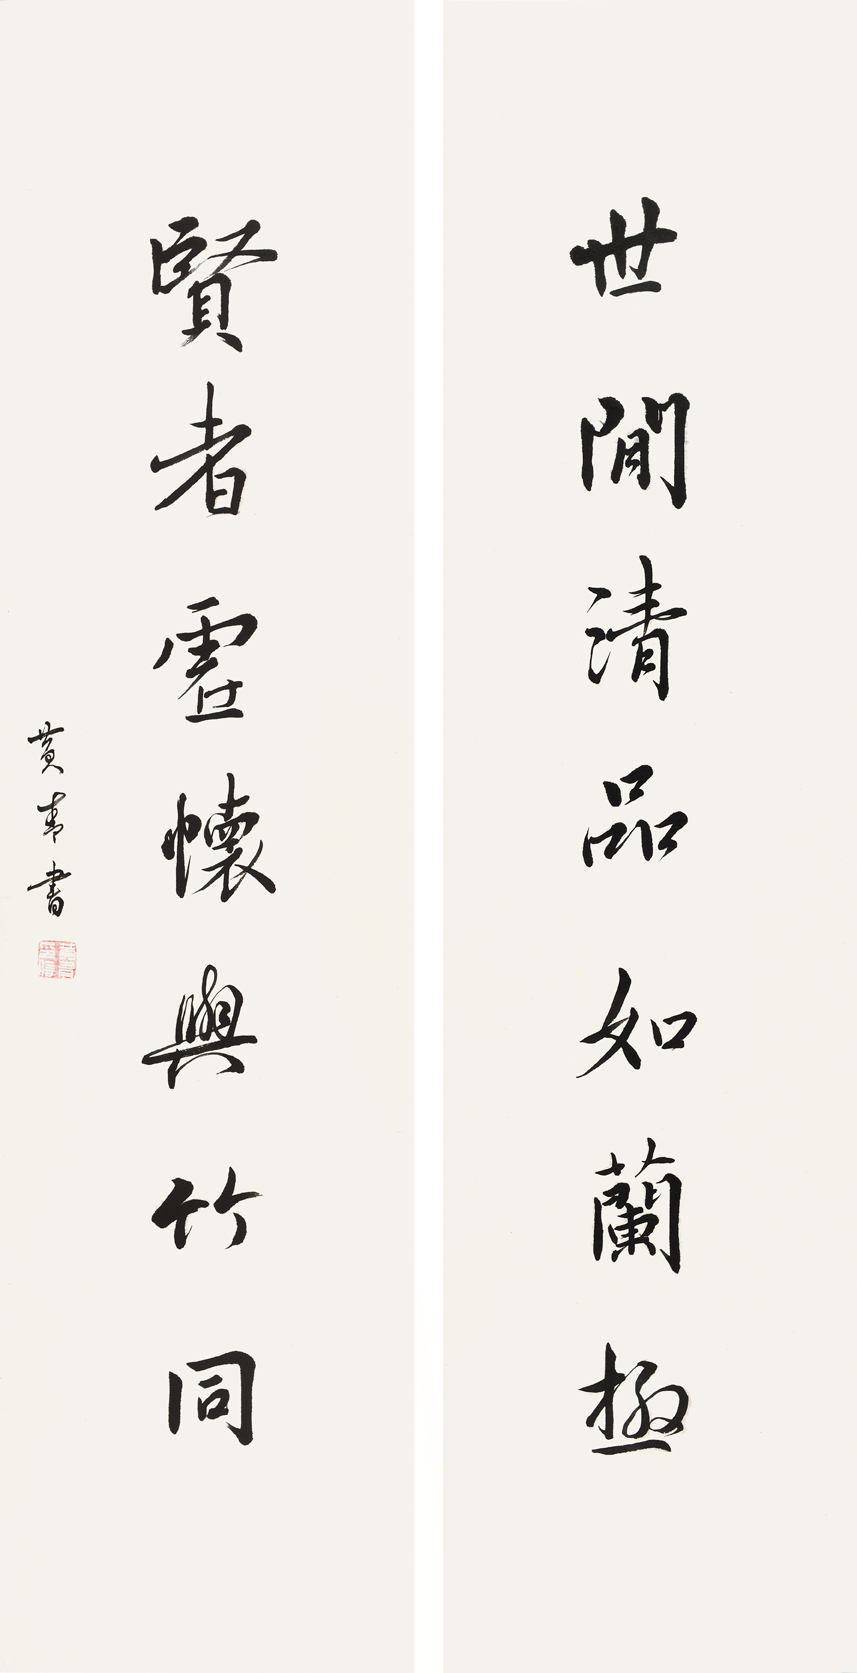 世間清品如蘭極
賢者虛懷與竹同
黃韋書